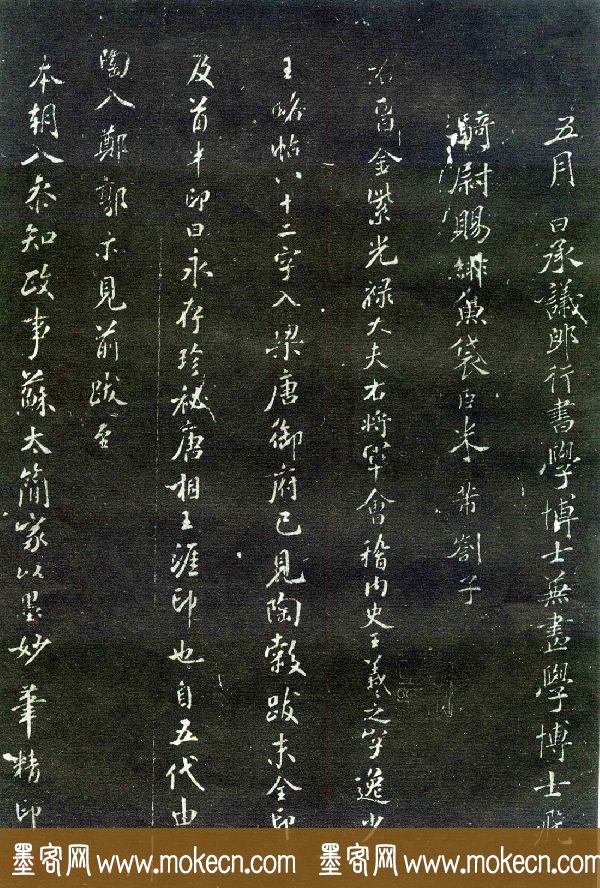 五月日承議郎行書學博士兼畫學博士飛
騎尉賜緋魚袋臣米芾劄子
右晉金紫光祿大夫右將軍會稽內史王羲之字逸少
王略帖八十二字入梁唐御府已見陶穀跋末全印
及首半印曰永存珍秘唐相王涯印也自五代由
陶入鄭郭亦見前跋至
本朝入參知政事蘇太簡家以墨妙筆精印
墨客网 www.mokecn.com 墨客网 www.mokecn.com